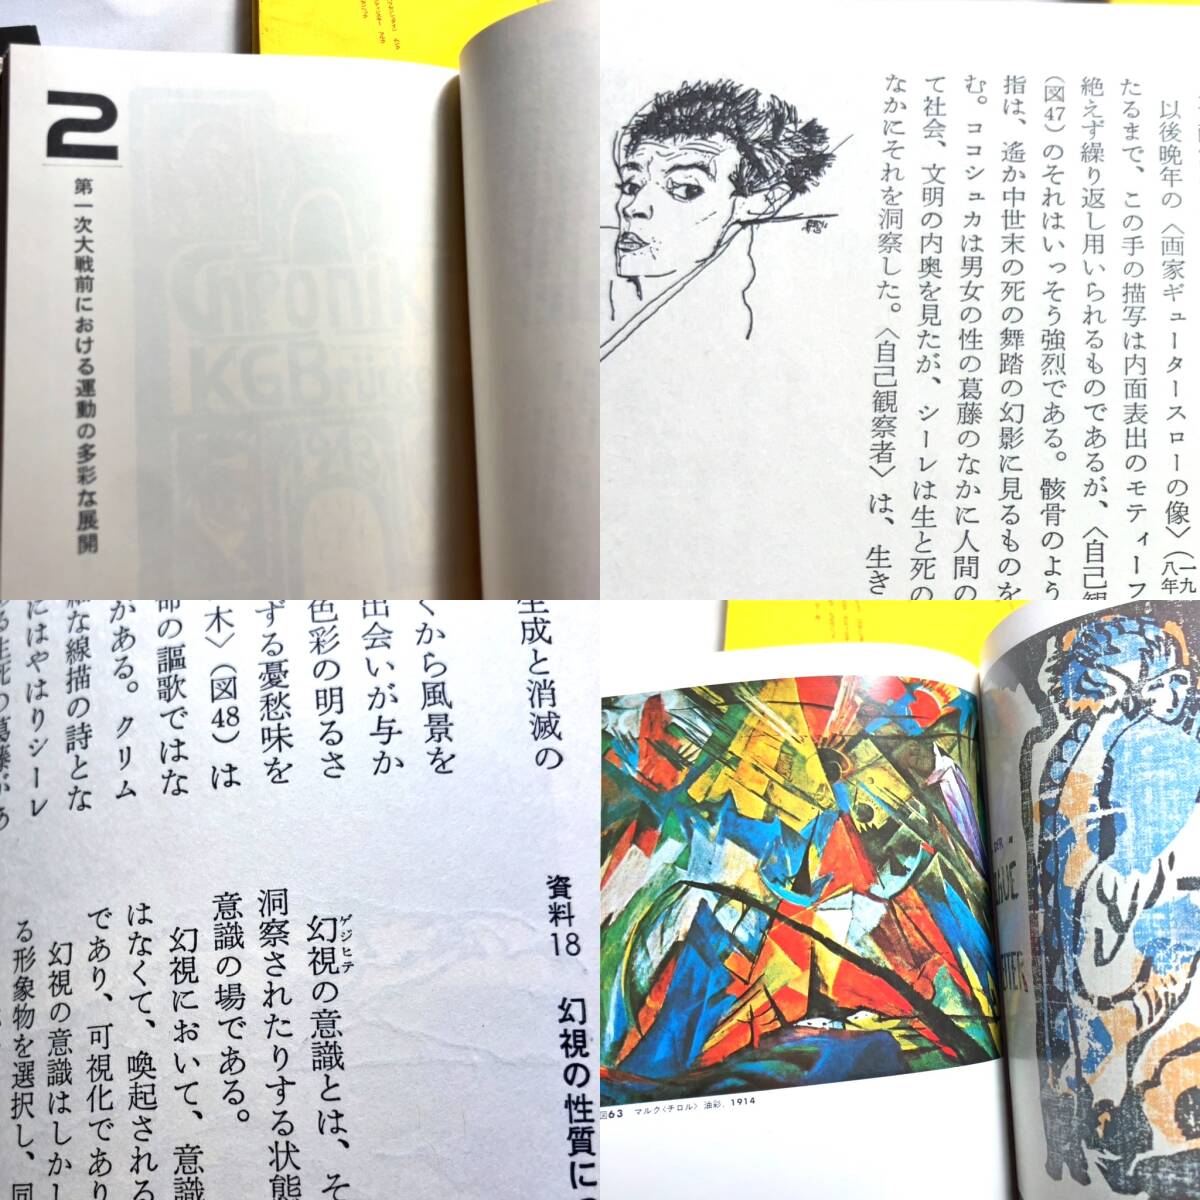 2
第一次大戦前における運動の多彩な展開
Chronik
KGBrücke
以後晩年の〈画家ギュータースローの像〉（一九
八年
たるまで、この手の描写は内面表出のモティーフ
絶えず繰り返し用いられるものであるが、〈自己観
（図47）のそれはいっそう強烈である。骸骨のよう
指は、遙か中世末の死の舞踏の幻影に見るものを
む。ココシュカは男女の性の葛藤のなかに人間の
て社会、文明の内奥を見たが、シーレは生と死の
なかにそれを洞察した。〈自己観察者〉は、生き
生成と消滅の
くから風景を
出会いが与か
色彩の明るさ
ずる憂愁味を
木〉（図48）は
命の謳歌ではな
がある。クリム
細な線描の詩とな
にはやはりシーレ
る生死の葛藤があ
資料18 幻視の性質につ
幻視の意識とは、そ
ゲジヒテ
洞察されたりする状態
意識の場である。
幻視において、意識
はなくて、喚起される
であり、可視化であり
幻視の意識はしかし
る形象物を選択し、同
図63 マルク〈チロル〉 油彩、1914
DER